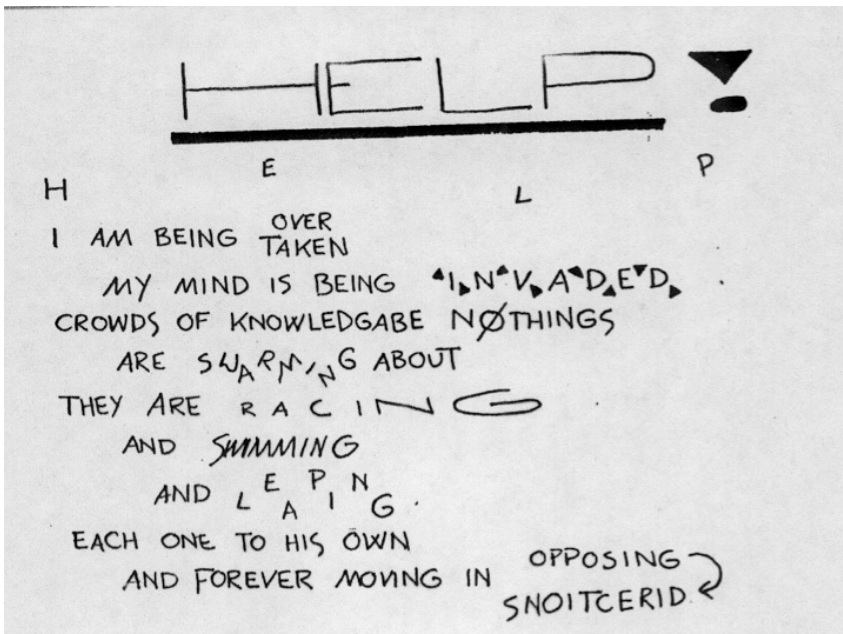 HELP!
H E L P
I AM BEING OVER TAKEN
MY MIND IS BEING INVADED.
CROWDS OF KNOWLEDGABE NØTHINGS
ARE SWARMING ABOUT
THEY ARE RACING
AND SWIMMING
AND LEAPING.
EACH ONE TO HIS OWN
AND FOREVER MOVING IN OPPOSING
SNOITCERID